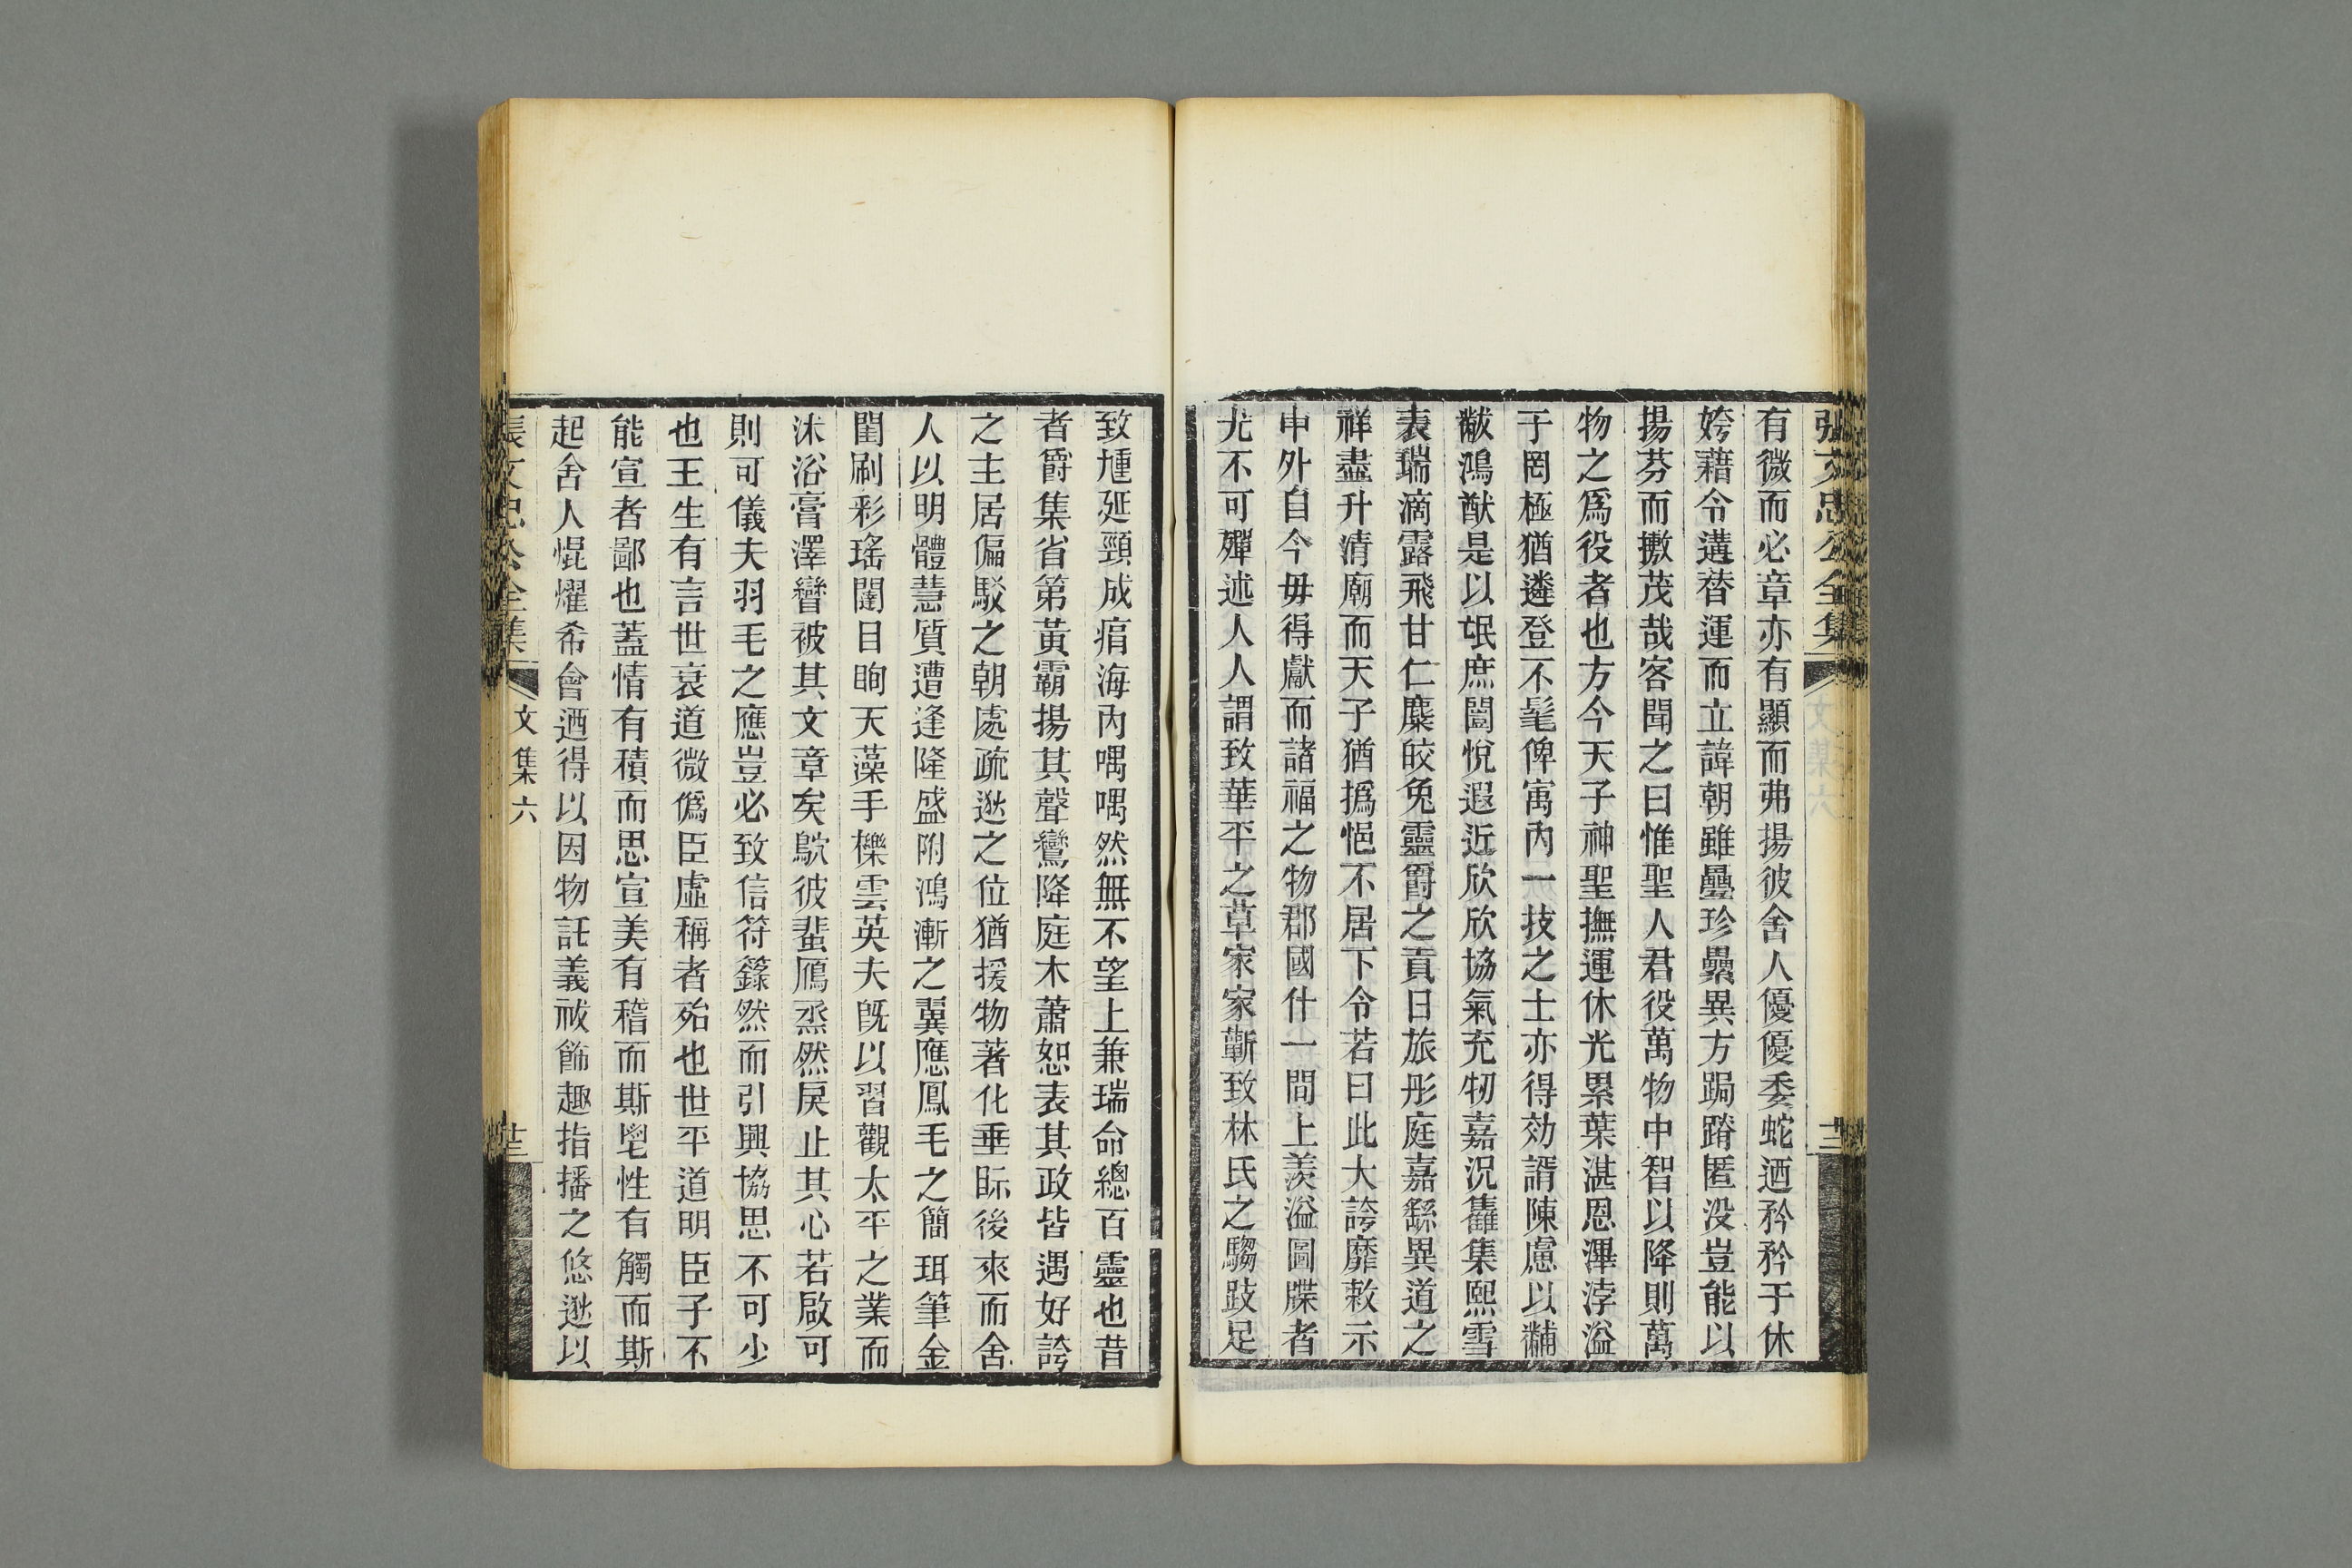 張文忠公全集
十二
有微而必章亦有顯而弗揚彼舍人優優委蛇迺矜矜于休
姱藉令遘替運而立諱朝雖曡珍纍異方跼蹐匿没豈能以
揚芬而擻茂哉客聞之曰惟聖人君役萬物中智以降則萬
物之爲役者也方今天子神聖撫運休光累葉湛恩滭浡溢
于罔極猶遴登不髦俾寓內一技之士亦得効諝陳慮以黼
黻鴻猷是以氓庶闓悅遐近欣欣協氣充牣嘉況雥集熙雪
表瑞滴露飛甘仁麋皎兔靈爵之貢日旅彤庭嘉繇異道之
祥盡升清廟而天子猶撝悒不居下令若曰此大誇靡敕示
申外自今毋得獻而諸福之物郡國什一問上羨溢圖牒者
尤不可殫述人人謂致華平之草家家蘄致林氏之騶跂足
致尰延頸成痟海內喁喁然無不望上兼瑞命總百靈也昔
者爵集省第黃霸揚其聲鸞降庭木蕭恕表其政皆遇好誇
之主居偏駁之朝處疏逖之位猶援物著化垂眎後來而舍
人以明體慧質遭逢隆盛附鴻漸之翼應鳳毛之簡珥筆金
閨刷彩瑤闥目眴天藻手櫟雲英夫旣以習觀太平之業而
沐浴膏澤響被其文章矣鴥彼蜚鴈烝然戾止其心若啟可
則可儀夫羽毛之應豈必致信符籙然而引興協思不可少
也王生有言世衰道微僞臣虛稱者殆也世平道明臣子不
能宣者鄙也蓋情有積而思宣美有稽而斯鬯性有觸而斯
起舍人焜燿希會迺得以因物託義祓飾趣指播之悠逖以
張文忠公全集
文集六
十三